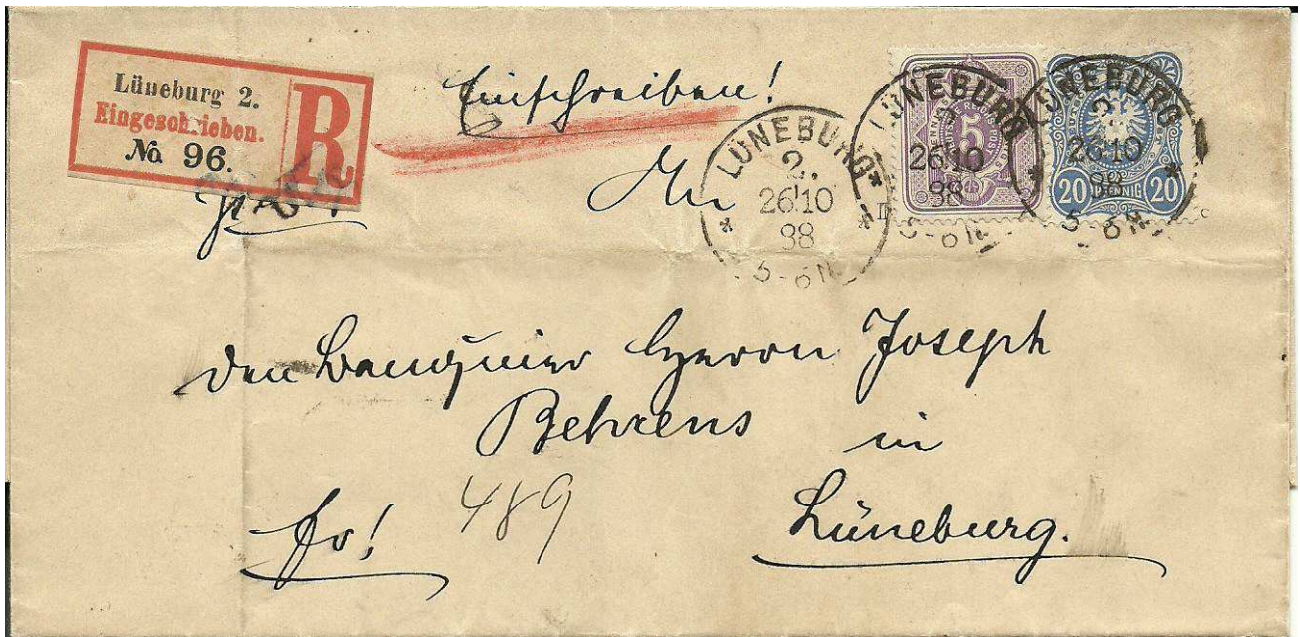 Lüneburg 2.
Eingeschrieben.
No 96.
R
Einschreiben!
An
LÜNEBURG
2.
26 10
88
5-6N.
5
LÜNEBURG
2.
26 10
88
5-6N.
LÜNEBURG
2.
26 10
88
5-6N.
20 PFENNIG 20
den Banquier Herrn Joseph
Behrens in
fr! 489 Lüneburg.